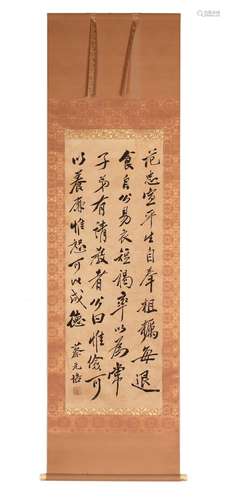 范忠宣平生自奉粗糲每退
食自公易衣短褐率以為常
子弟有請教者公曰惟儉可
以養廉惟恕可以成德 蔡元培